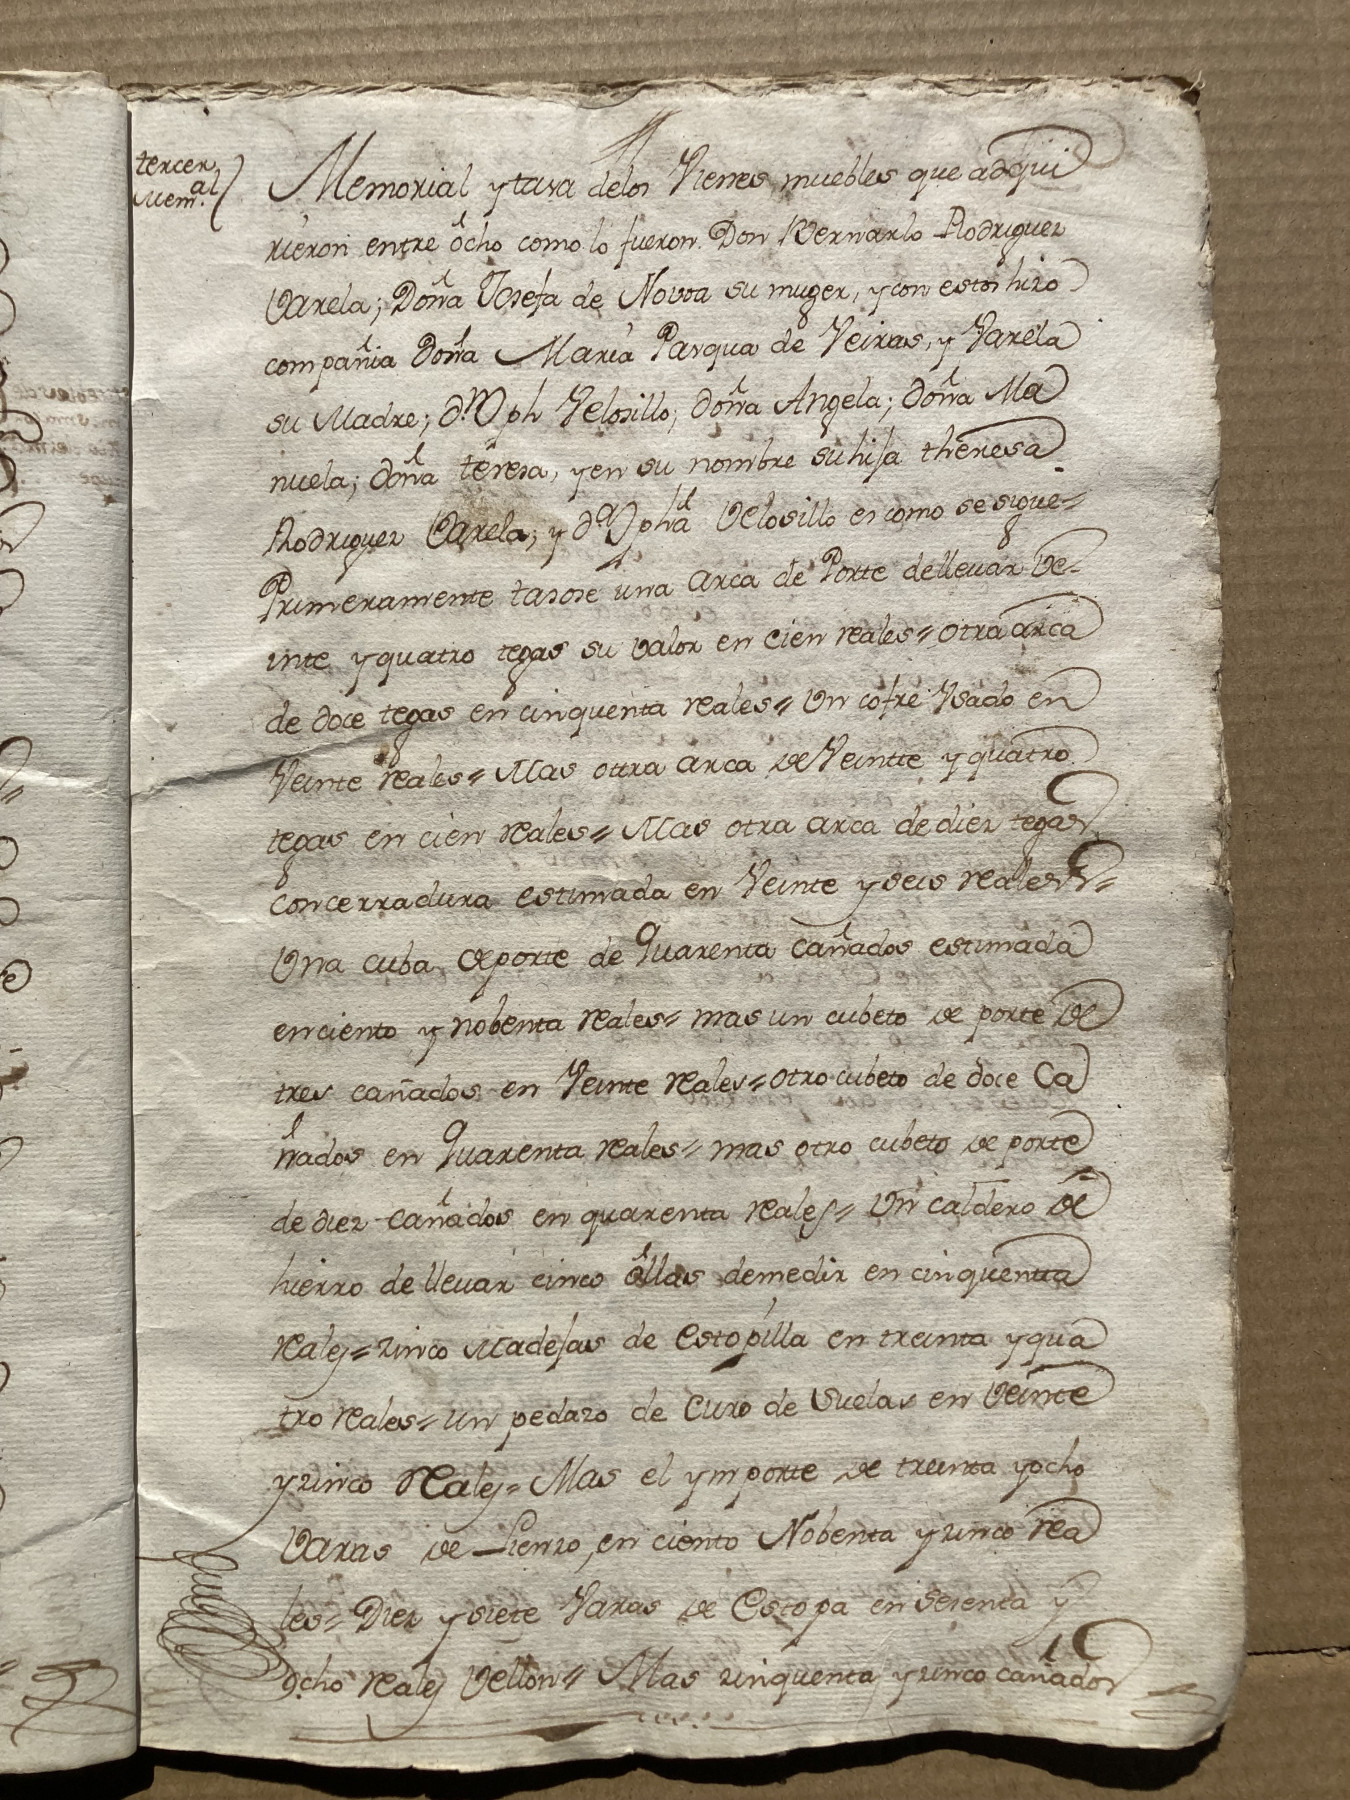 tercer
Mem.al
Memorial y tasa delos Vienes, muebles que adqui
rieron entre ôcho como lo fueron. Don Bernardo Rodriguez
Varela; Doña Josefa de Novoa su muger, y con estos hizo
compañia Doña Maria Pasqua de Veiras, y Varela
su Madre; dn Jph Velosillo; doña Angela; doña Ma
nuela; doña teresa, y en su nombre su hija theresa
Rodriguez Varela; y da Jpha Velosillo es como se sigue=
Primeramente tasose una arca de Porte dellevar Ve-
inte y quatro tegas su valor en cien reales= otra arca
de doce tegas en cinquenta reales= Un cofre Vsado en
Veinte reales= Mas otra arca de Veinte y quatro
tegas en cien reales= Mas otra arca de diez tegas
con cerradura estimada en Veinte y seis reales=
Una cuba, de porte de Quarenta cañados estimada
en ciento y nobenta reales= mas un cubeto de porte de
tres cañados en Veinte reales= otro cubeto de doce Ca
ñados en Quarenta reales= mas otro cubeto de porte
de diez cañados en quarenta reales= Un caldero de
hierro de llevar cinco ôllas demedir en cinquenta
reales= zinco Madejas de Estopilla en treinta y qua
tro reales= un pedazo de Curo de Suelas en Veinte
y zinco Reales= Mas el ymporte de treinta y ocho
Varas de Lienzo, en ciento Nobenta y zinco rea
les= Diez y siete Varas de Estopa en sesenta y
ôcho reales Vellon= Mas zinquenta y zinco cañados